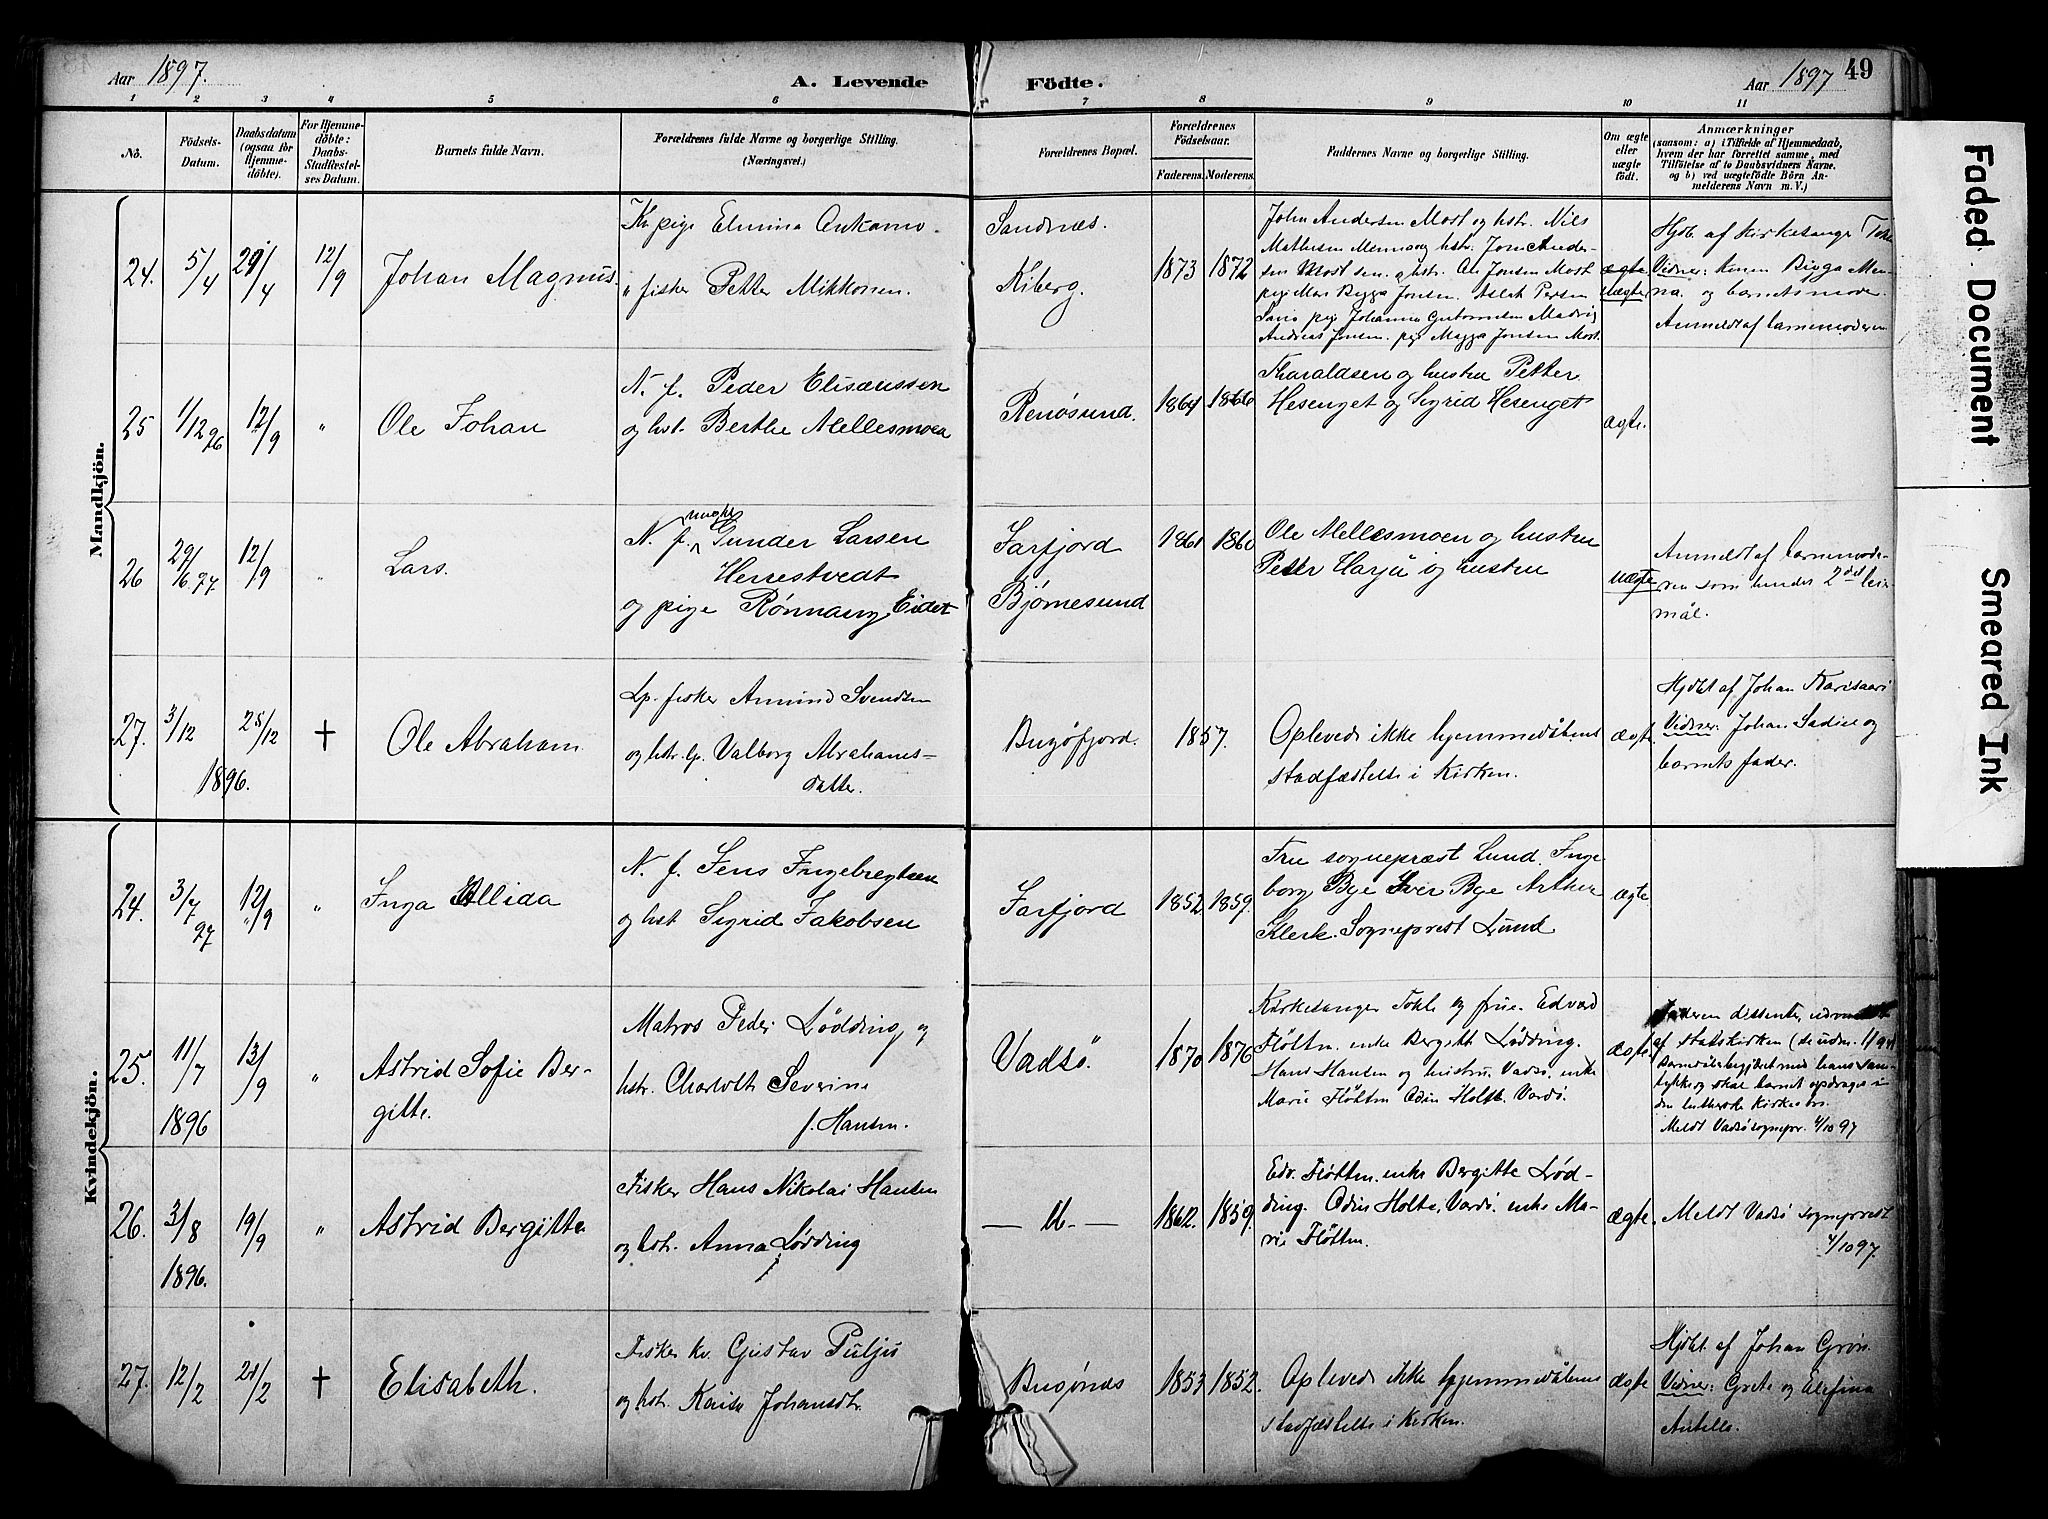 Aar 1897.
A. Levende Födte.
Aar 1897
49
1 2 3 4 5 6 7 8 9 10 11
No.
Födsels-
Datum.
Daabsdatum
(ogsaa for
Hjemme-
döbte).
For Hjemme-
döbte:
Daabs-
Stadfæstel-
ses Datum.
Barnets fulde Navn.
Forældrenes fulde Navne og borgerlige Stilling.
(Næringsvei.)
Forældrenes Bopæl.
Forældrenes
Födselsaar.
Faderens. Moderens.
Faddernes Navne og borgerlige Stilling.
Om ægte
eller
uægte
födt.
Anmærkninger
(saasom: a) i Tilfælde af Hjemmedaab,
hvem der har forrettet samme, med
Tilföielse af to Daabsvidners Navne,
og b) ved uægtefödte Börn An-
melderens Navn m. V.)
Mandkjön.
24.
5/4
29/4
12/9
Johan Magnus.
Kv. pige Elmina
" fisker Petter Mikkonen.
Sandnæs.
Kiberg.
1873
1872
John Andersen Most og hstr. Nils
Mathisen Menna og hstr. Jon Ander-
sen Most sen. og hstr. Ole Jonsen Most
pige Mari Bigga Jonsen. Aslak Persen
pige Johanna
Andreas Jonsen. pige Magga Jonsen Most.
ægte
uægte
Hjdb. af Kirkesanger
Vidner: Konen Bigga Men-
na. og barnets moder.
Anmeldt af barnemoderen
25
1/12 96
12/9
"
Ole Johan
N. f. Peder Elisæussen
og hst. Berthe Mellesmoen
Renøsund.
1864
1866
Haraldsen og hustru Petter
Hesenget og Sigrid Hesenget
ægte.
26
29/6 97.
12/9
"
Lars.
N. f. Gunder Larsen
Herrestvedt
og pige Rønnaug Eidet
Jarfjord
Bjørnesund
1861
1860
Ole Mellesmoen og hustru
Peter Harju og hustru
uægte
Anmeldt af barnemode-
ren som hendes 2det leier-
mål.
27.
3/12
1896.
25/12
†
Ole Abraham
Lp. fisker Amund Svendsen
og hstr. lp. Valborg Abrahams-
datter.
Bugøfjord.
1857.
Opleved ikke hjemmedåbens
stadfæstelse i Kirken.
ægte.
Hjdbt af Johan Karisaari
Vidner: Johan Sadin og
barnets fader.
Kvindekjön.
24.
3/7 97
12/9
"
Inga Allida
N. f. Jens Ingebregtsen
og hst. Sigrid Jakobsen
Jarfjord
1852
1859.
Fru sognepræst Lund. Inge
borg Bye Iver Bye Arthur
Klerk. Sogneprest Lund
ægte
25.
11/7
1896
13/9
"
Astrid Sofie Ber-
gitte.
Matros Peder Lødding og
hstr. Charlotte Severine
f. Hansen.
Vadsö.
1870
1876
Kirkesanger Tokle og frue. Edvard
Fløttn. enke Bergitte Lødding.
Hans Hansen og hustru. Vadsø. enke
Marie Fløttn Odin Holte. Vardø.
ægte
Faderen dissenter,
af Statskirken
Barnedåb begjæret med hans sam-
tykke og skal barnet opdrages i
den lutherske Kirkes tro.
Meldt Vadsø sognepr. 4/10 97
26.
3/8
1896.
19/9
"
Astrid Bergitte
Fisker Hans Nikolai Hansen
og hstr. Anna Lødding
— 11 —
1862.
1859.
Edv. Fløttn. enke Bergitte Lød-
ding. Odin Holte, Vardø. enke Ma-
rie Fløttn.
ægte.
Meldt Vadsø sogneprest
4/10 97.
27.
12/2
21/2
†
Elisabeth.
Fisker kv. Gustav Puljus
og hstr. Kaisa Johansdtr.
Bugønæs
1853
1852.
Opleved ikke hjemmedåbens
stadfæstelse i Kirken.
ægte
Hjdbt. af Johan Grön
Vidner: Grete og Elefina
Antella.
Faded Document
Smeared Ink